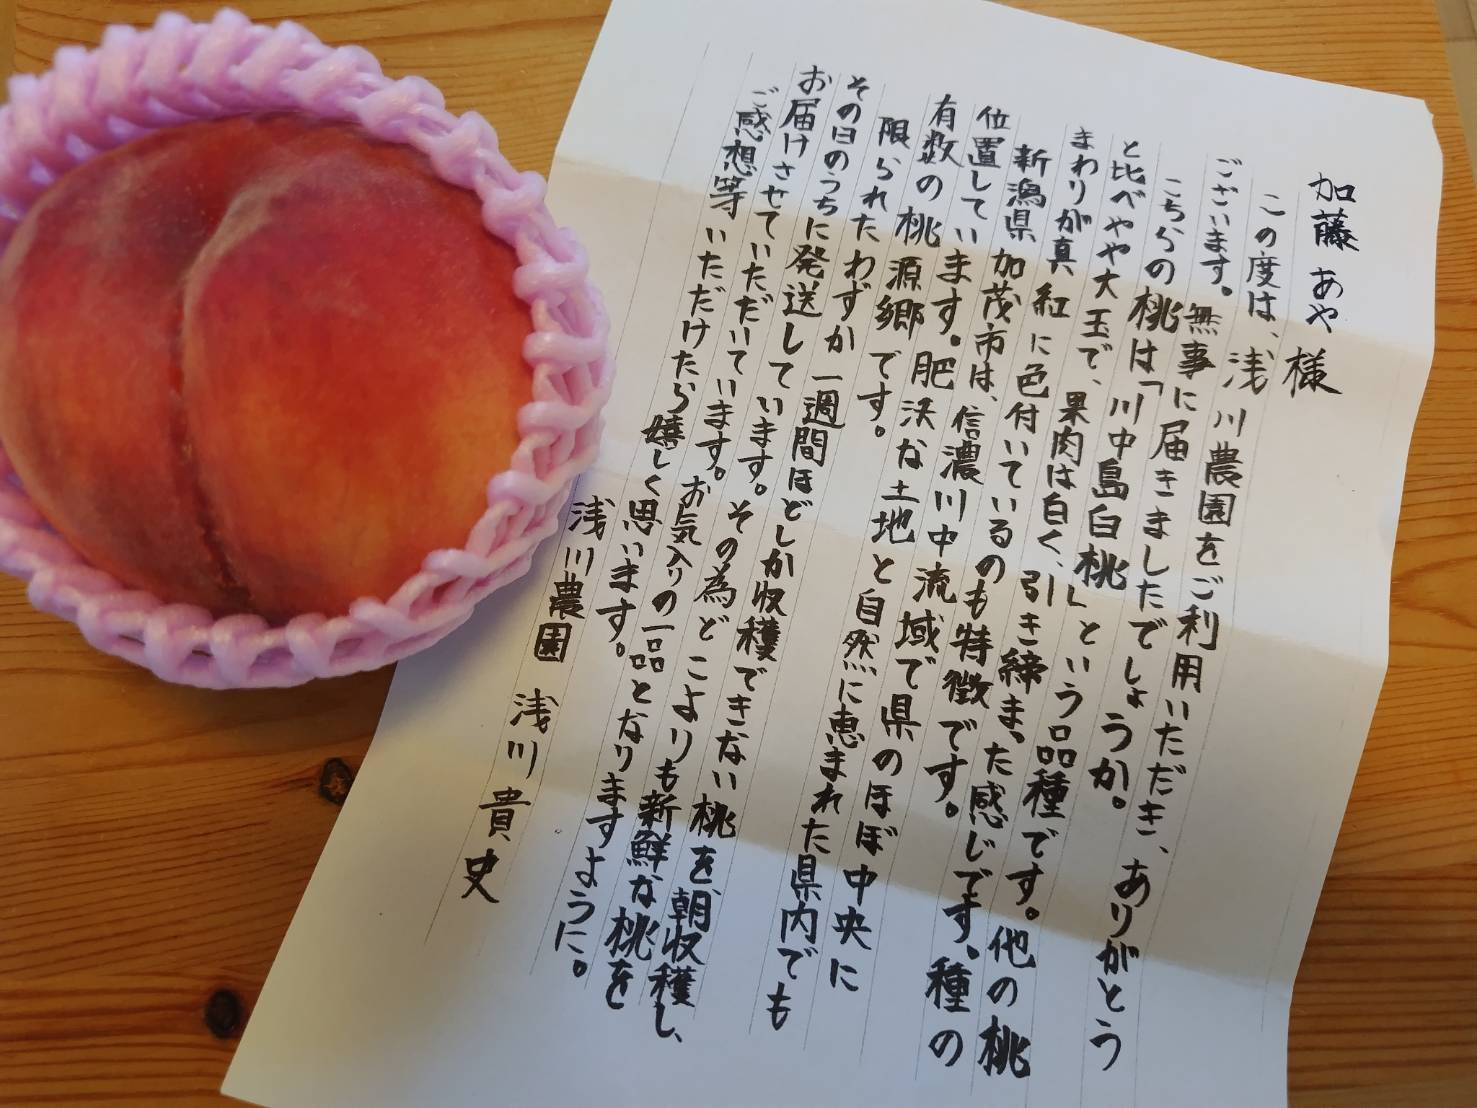 加藤あや様
この度は、浅川農園をご利用いただき、ありがとう
ございます。無事に届きましたでしょうか。
こちらの桃は「川中島白桃」という品種です。他の桃
と比べやや大玉で、果肉は白く、引き締まった感じです。種の
まわりが真紅に色付いているのも特徴です。
新潟県加茂市は、信濃川中流域で県のほぼ中央に
位置しています。肥沃な土地と自然に恵まれた県内でも
有数の桃源郷です。
限られたわずか一週間ほどしか収穫できない桃を、朝収穫し、
その日のうちに発送しています。その為どこよりも新鮮な桃を
お届けさせていただいています。お気入りの一品となりますように。
ご感想等いただけたら嬉しく思います。
浅川農園 浅川貴史